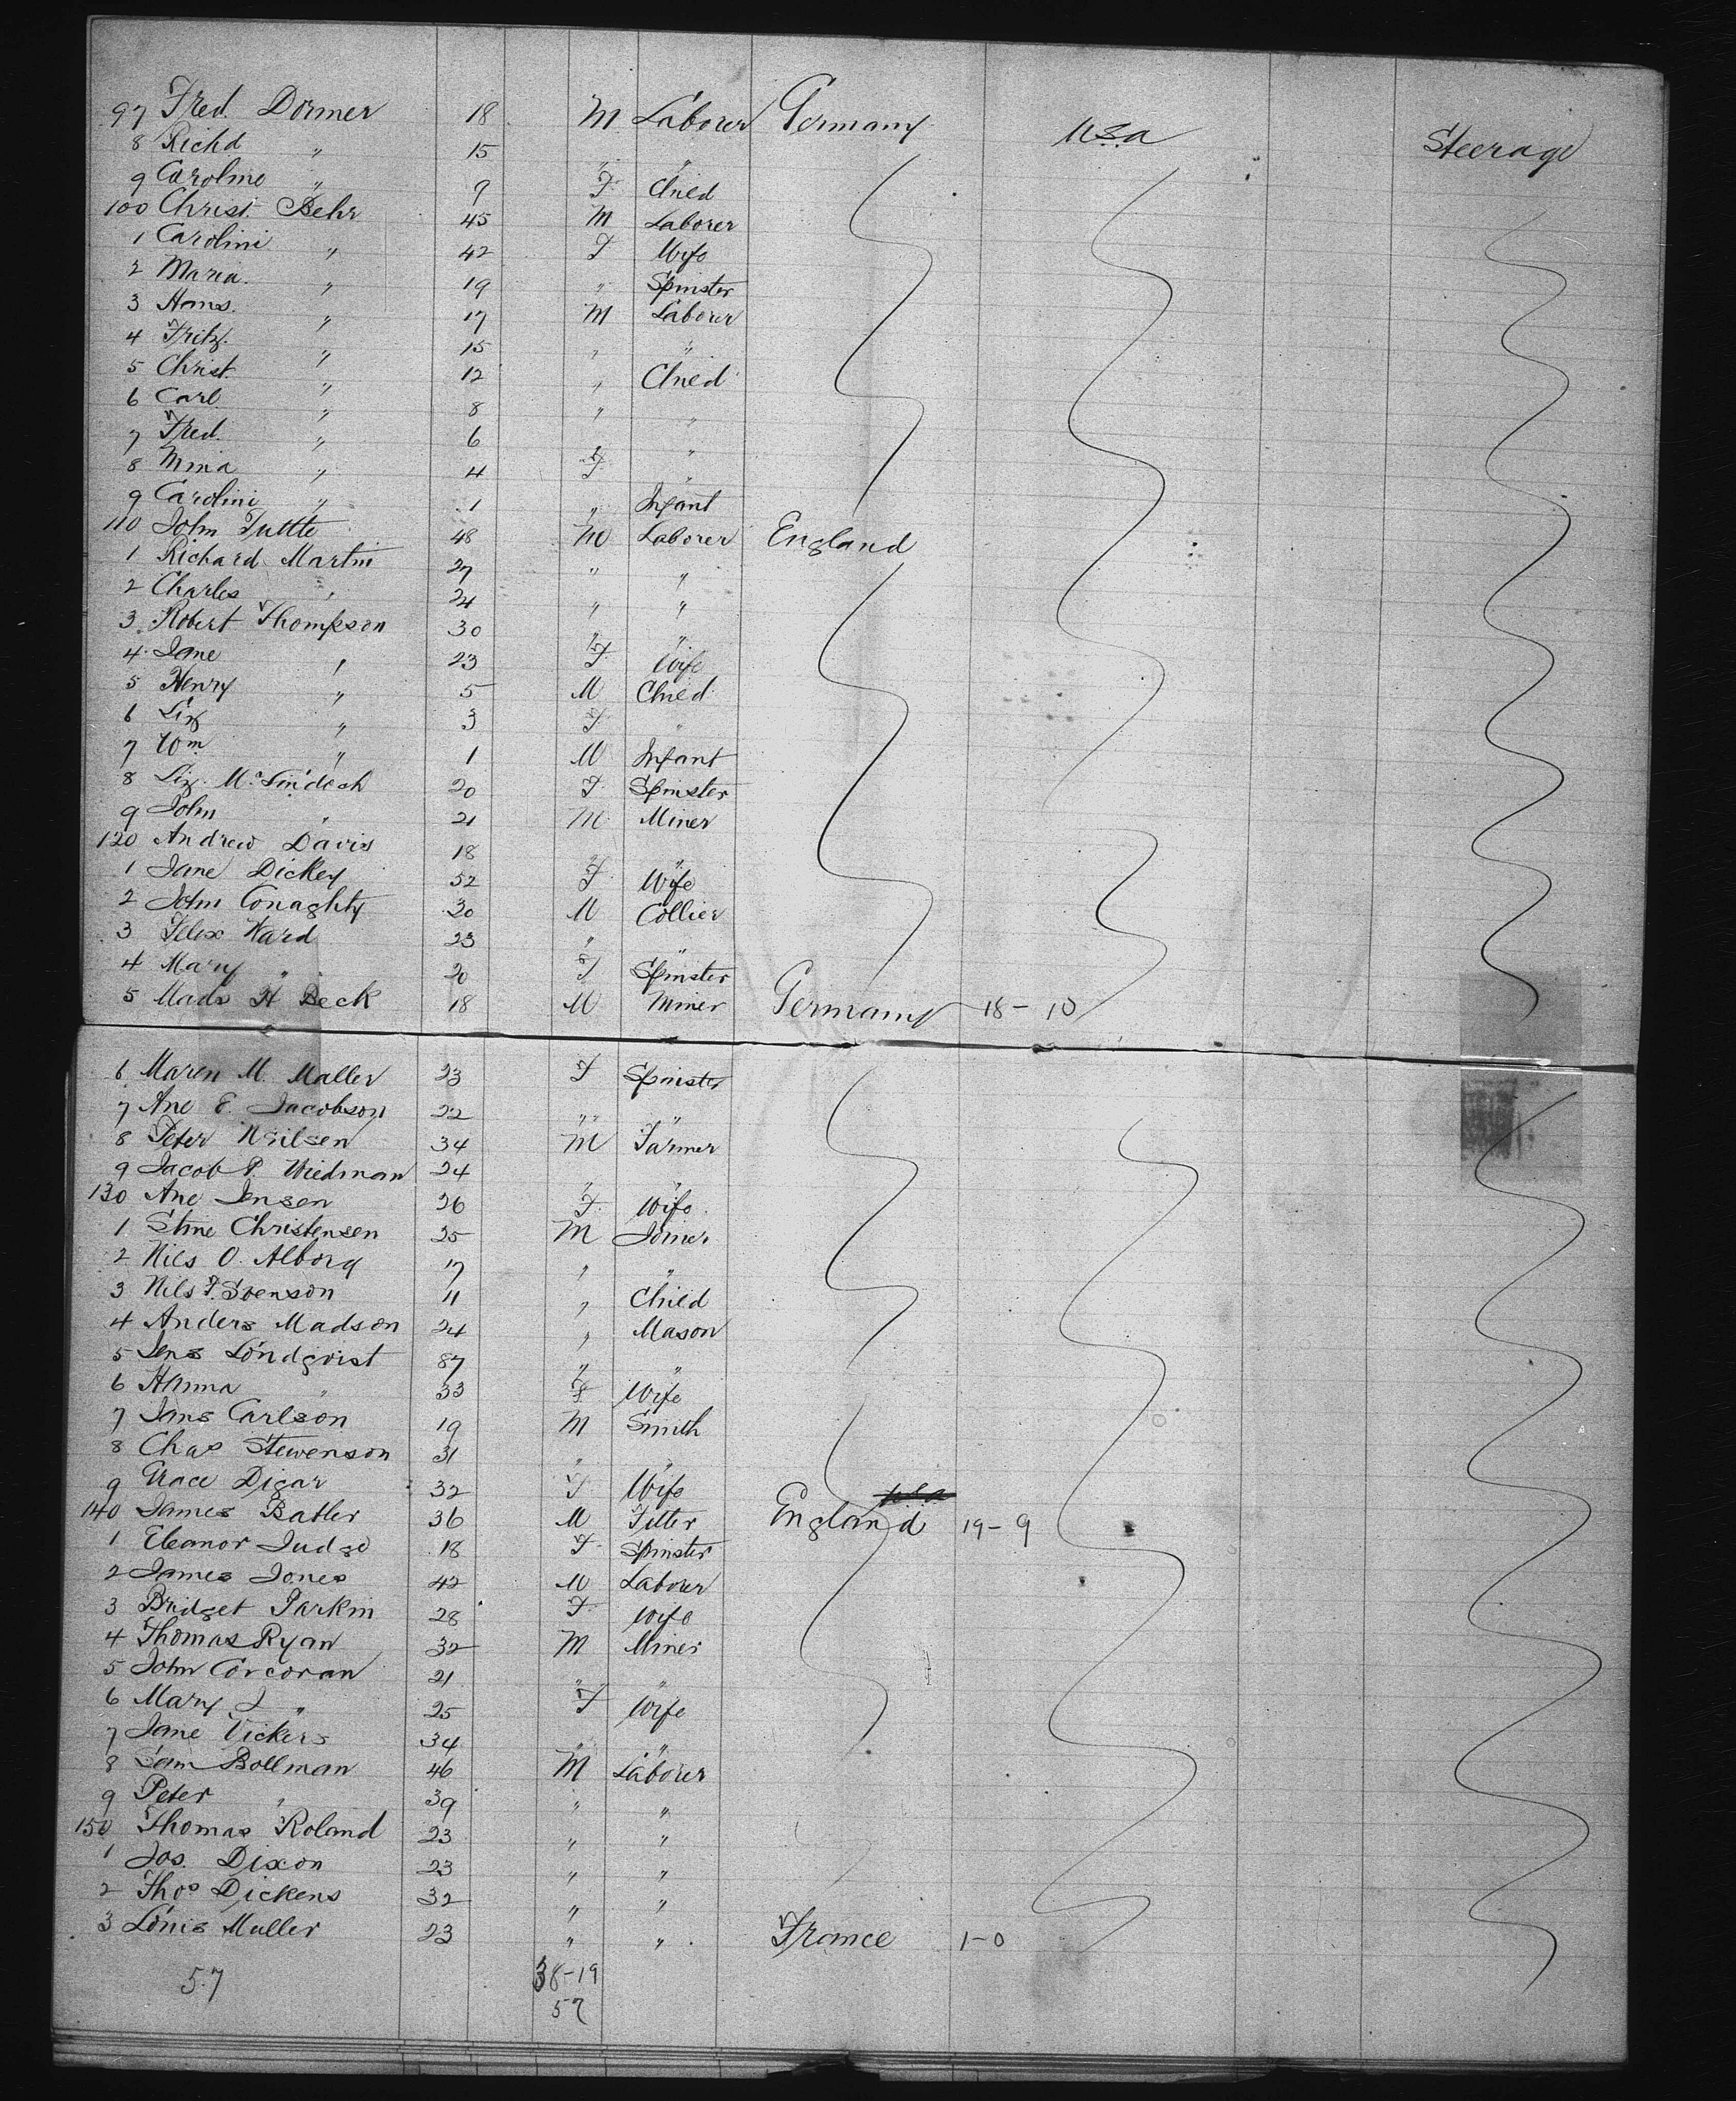 97 Fred. Dormer 18 M Laborer Germany U.S.a Steerage
8 Richd " 15 " "
9 Caroline " 9 F Child
100 Christ. Behr 45 M Laborer
1 Carolini " 42 F Wife
2 Maria. " 19 " Spinster
3 Hans. " 17 M Laborer
4 Fritz. " 15 " "
5 Christ. " 12 " Child
6 Carl " 8 " "
7 Fred. " 6 "
8 Mina " 4 F "
9 Carolini " 1 " Infant
110 John Tuttle 48 M Laborer England
1 Richard Martin 27 " "
2 Charles " 24 " "
3 Robert Thompson 30 " "
4 Jane " 23 F Wife
5 Henry " 5 M Child
6 Liz " 3 F "
7 Wm " 1 M Infant
8 Liz. 20 F Spinster
9 John " 21 M Miner
120 Andrew Davis 18 "
1 Jane Dickey 52 F Wife
2 John Conaghty 30 M Collier
3 Felix Ward 23 " "
4 Mary " 20 F Spinster
5 Mads H Beck 18 M Miner Germany 18-10
6 Maren M. Maller 23 F Spinster
7 Ane E. Jacobson 22 " "
8 Peter Neilsen 34 M Farmer
9 Jacob P. Wiedman 24 " "
130 Ane Jensen 26 F Wife
1 Stine Christensen 25 M Joiner
2 Nils O. Alborg 17 " "
3 Nils F. Svenson 11 " Child
4 Anders Madson 24 " Mason
5 Jens Londqvist 37 " "
6 Hanna " 33 F Wife
7 Jans Carlson 19 M Smith
8 Chas Stewenson 31 " "
9 Grace Digar 32 F Wife
140 James Batler 36 M Fitter England 19-9
1 Eleanor Judge 18 F Spinster
2 James Jones 42 M Laborer
3 Bridget Parkin 28 F Wife
4 Thomas Ryan 32 M Miner
5 John Corcoran 21 " "
6 Mary J " 25 F Wife
7 Jane Vickers 34 " "
8 Sam Bollman 46 M Laborer
9 Peter " 39 " "
150 Thomas Roland 23 " "
1 Jos. Dixon 23 " "
2 Thos Dickens 32 " "
3 Louis Muller 23 " " France 1-0
57 38-19
57